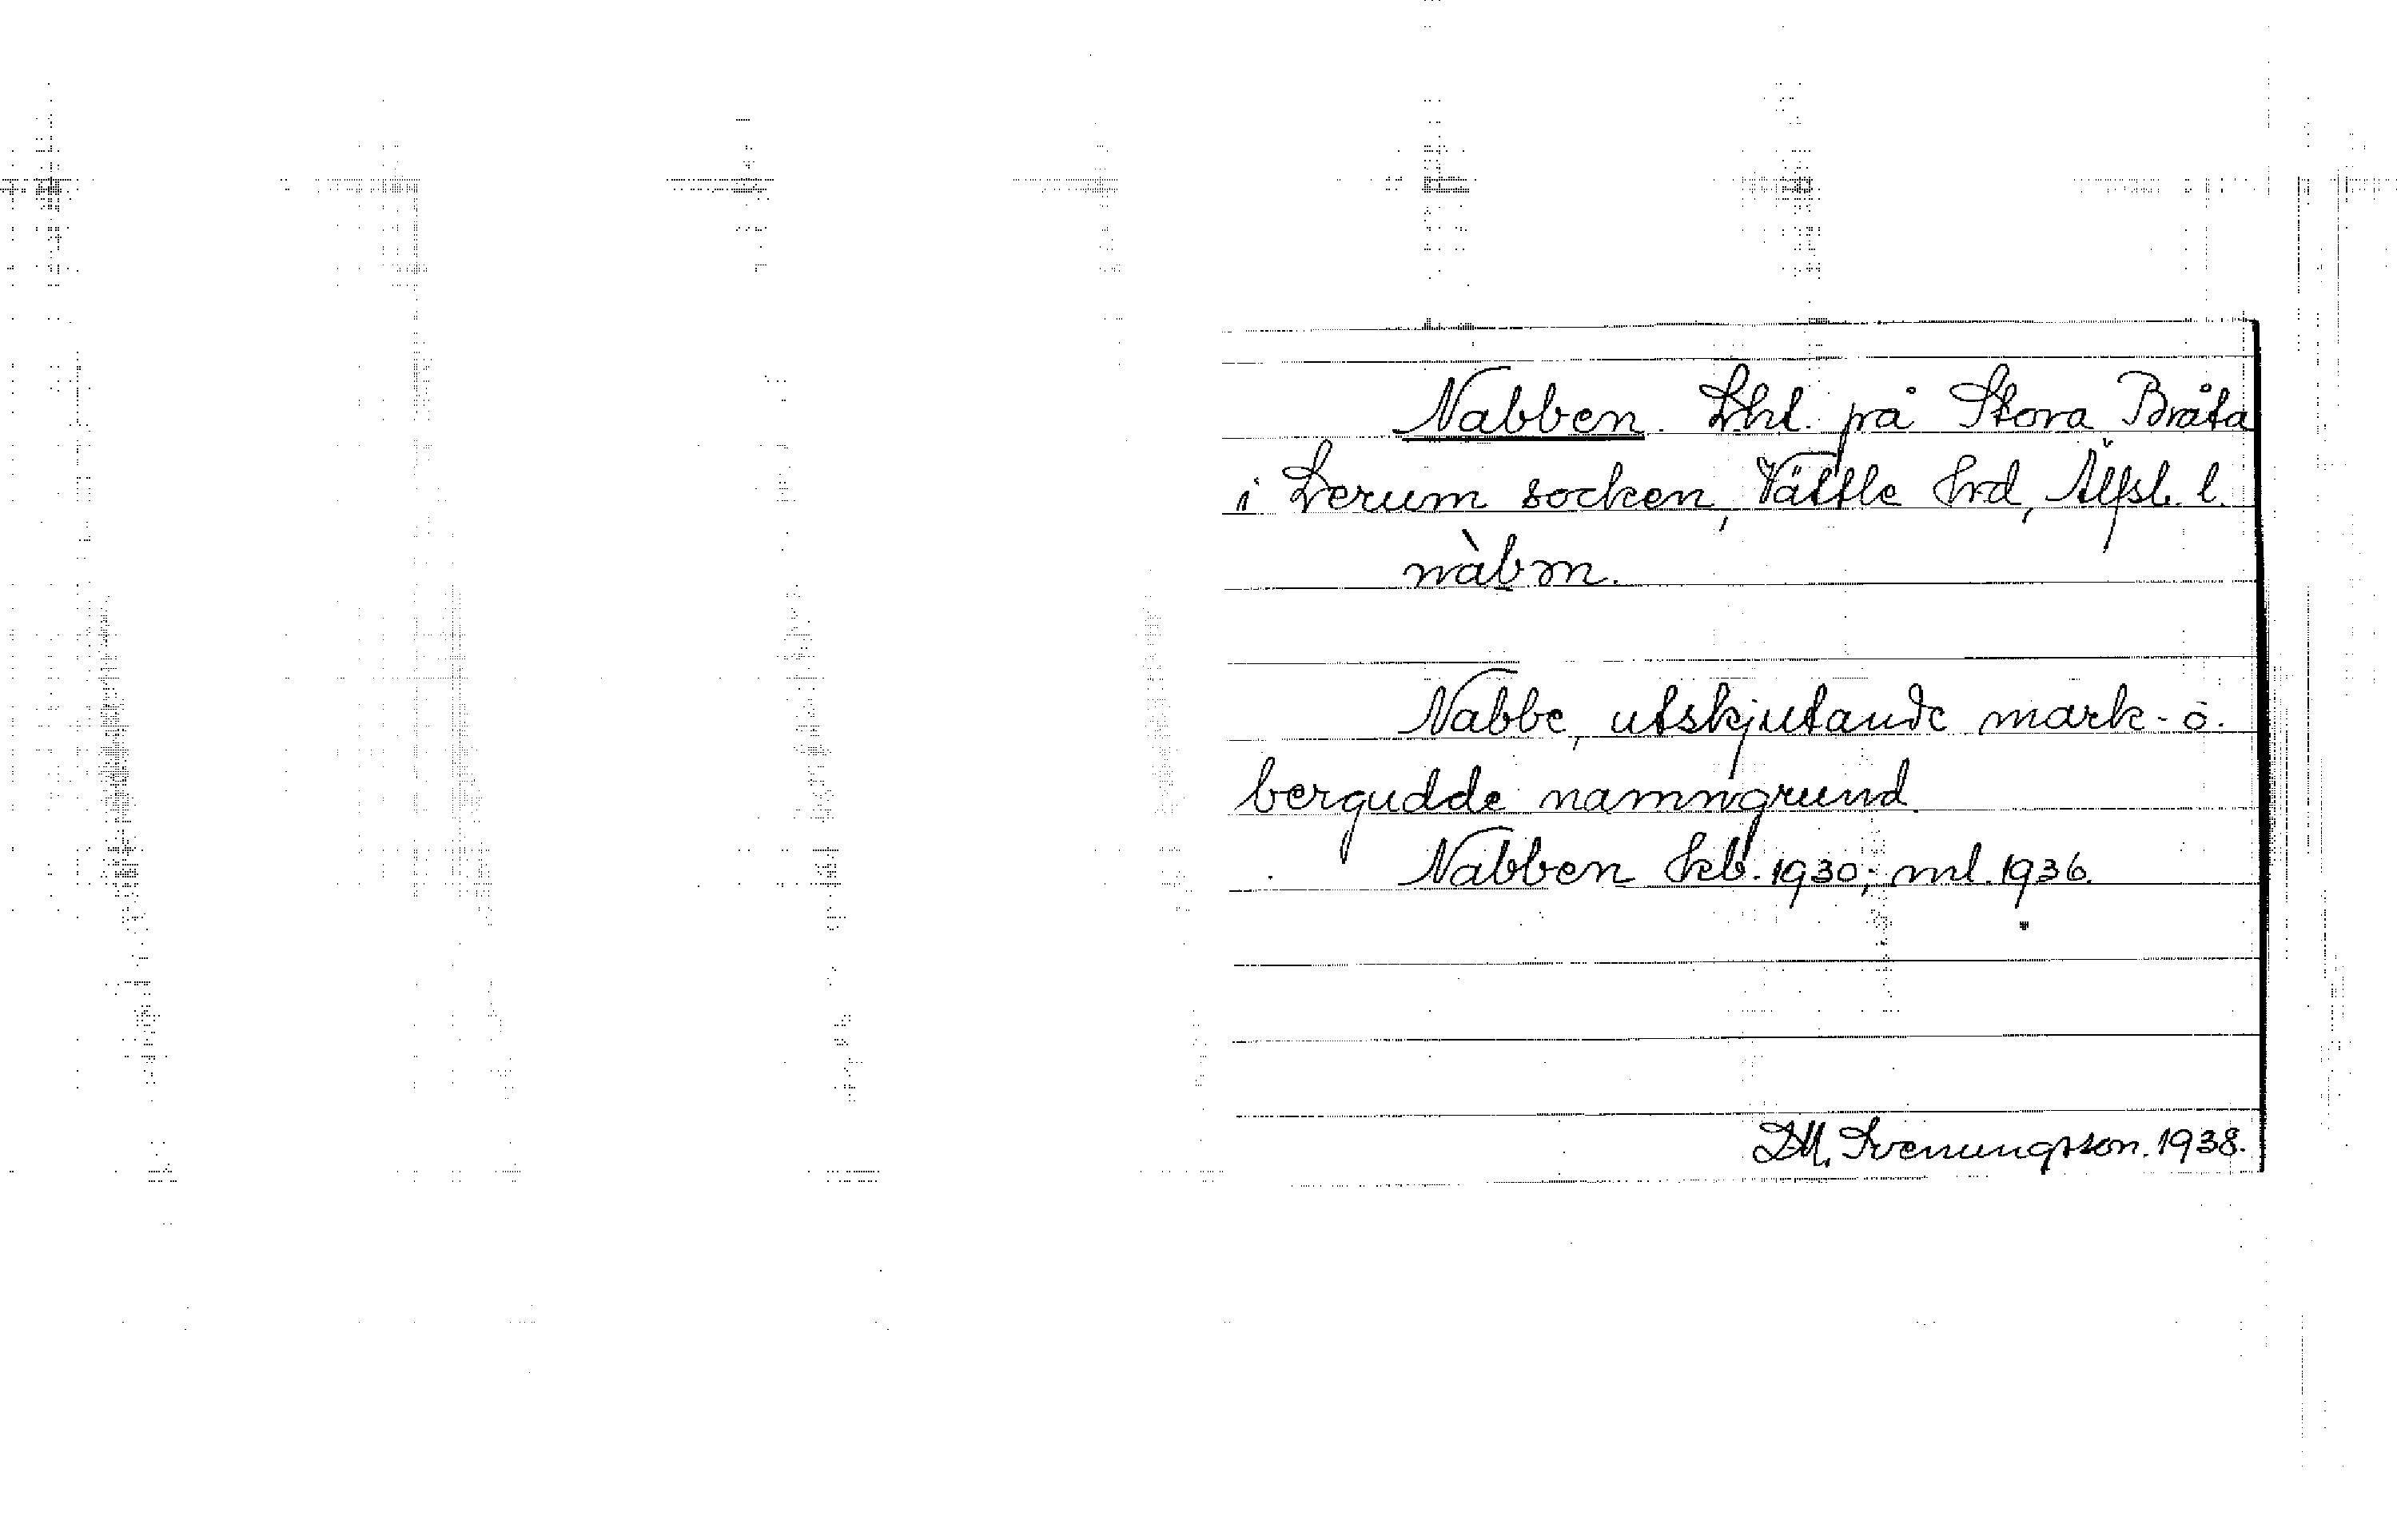 Nabben. Lht. på Stora Bråta
i Lerum socken, Vättle hrd, Älfsb. l.
nàbm.
Nabbe, utskjutande mark- o.
bergudde namngrund
Nabben kb. 1930; ml. 1936.
D.M. Svenungsson. 1938.